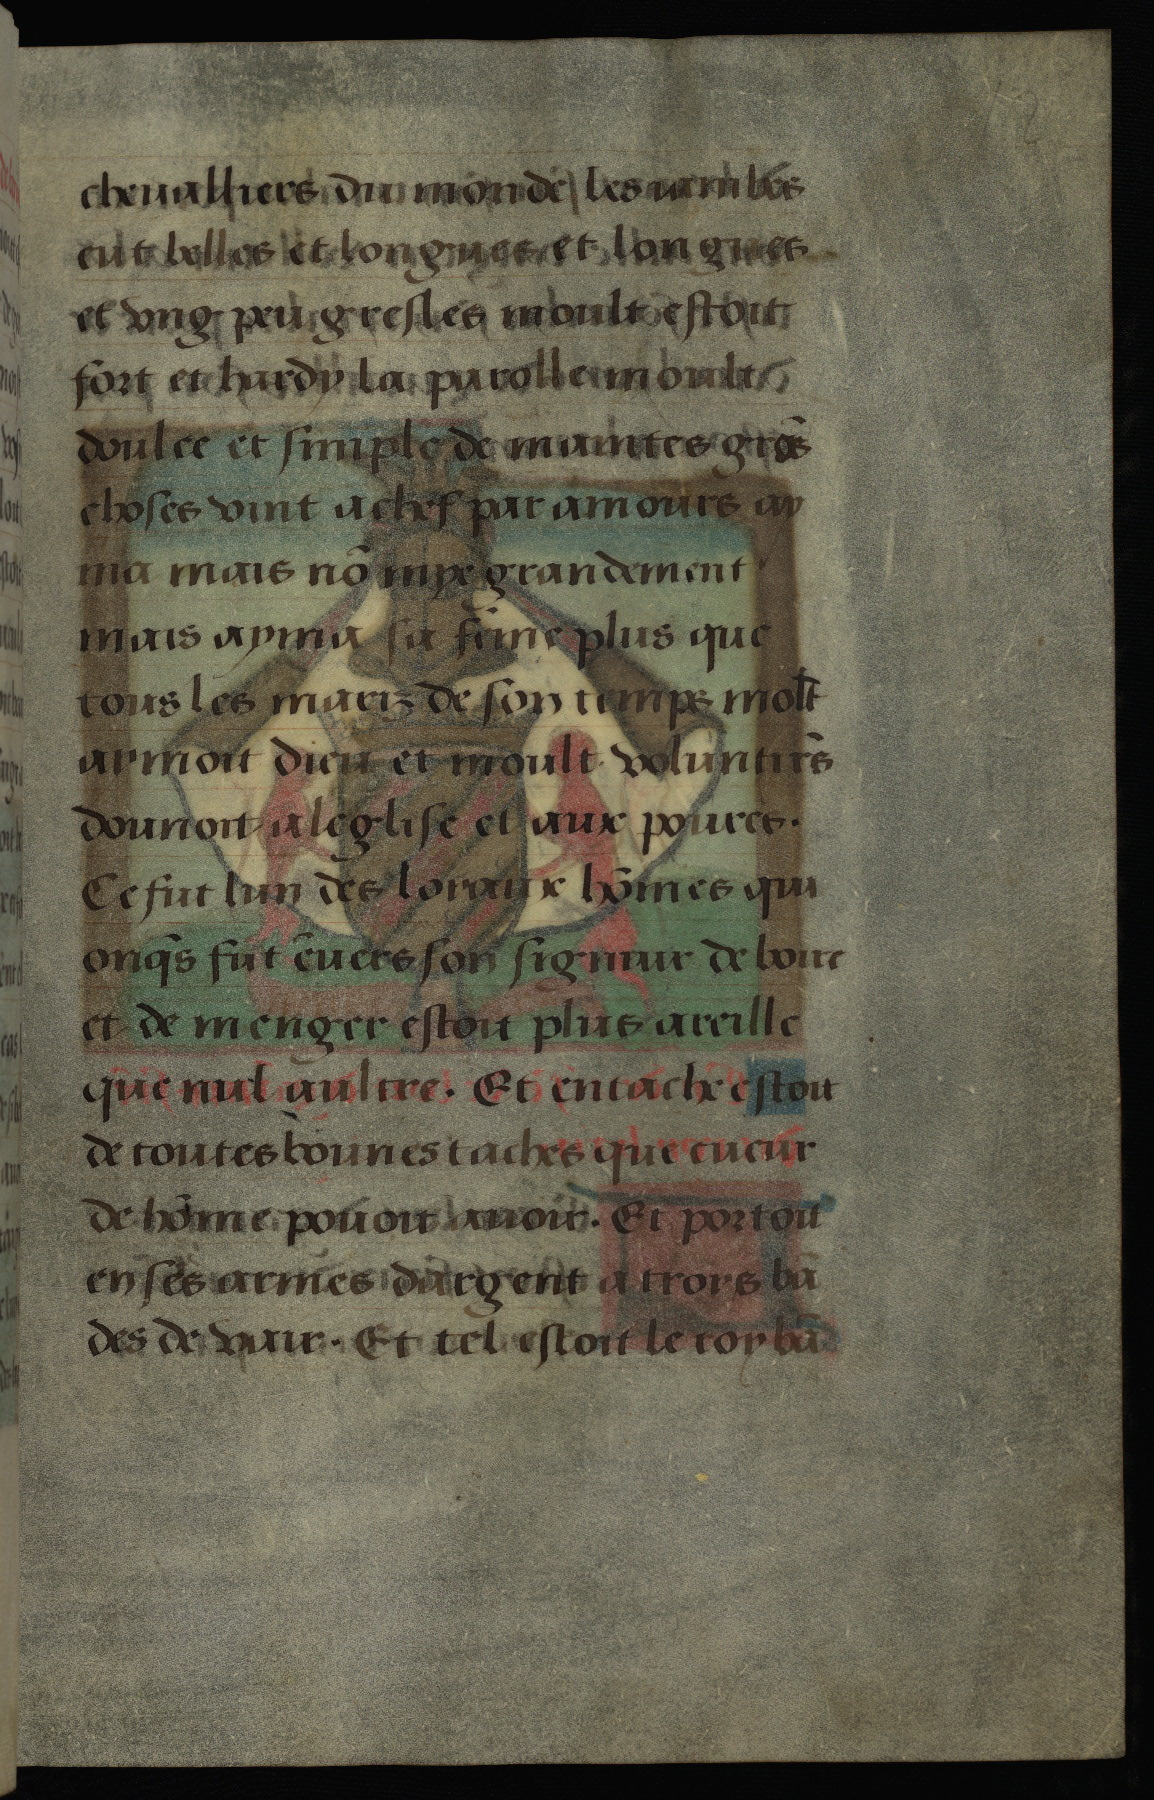 cheualliers du monde les iambes
eut belles et longues et longues
et vng peu gresles moult estoit
fort et hardy la parolle moult
doulce et simple de maintes grãs
choses vint a chef par amours ay
ma mais nõ mye grandement
mais ayma sa fẽme plus que
tous les mariz de son temps molt
aymoit dieu et moult voluntirs̃
donnoit a leglise et aux poures.
Ce fut lun des loyaux hõmes qui
onqs̃ fut ẽuers son signeur de boire
et de menger estoit plus aveille
que nul aultre. Et entache estoit
de toutes bonnes taches que cueur
de hõme pouoit auoir. Et portoit
en ses armes dargent a troys bã
des de vair. Et tel estoit le roy bã